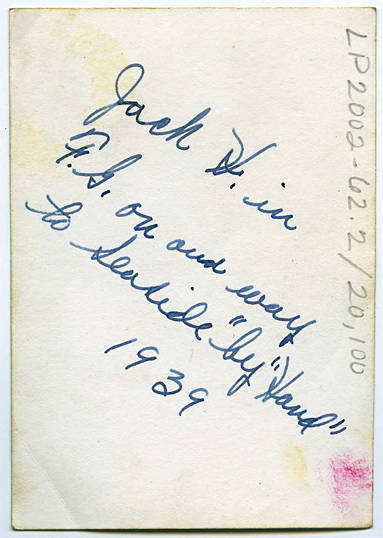 Jack H. in
F.G. on our way
to Seaside "by "Hand"
1939
LP2002-62.2/20,100